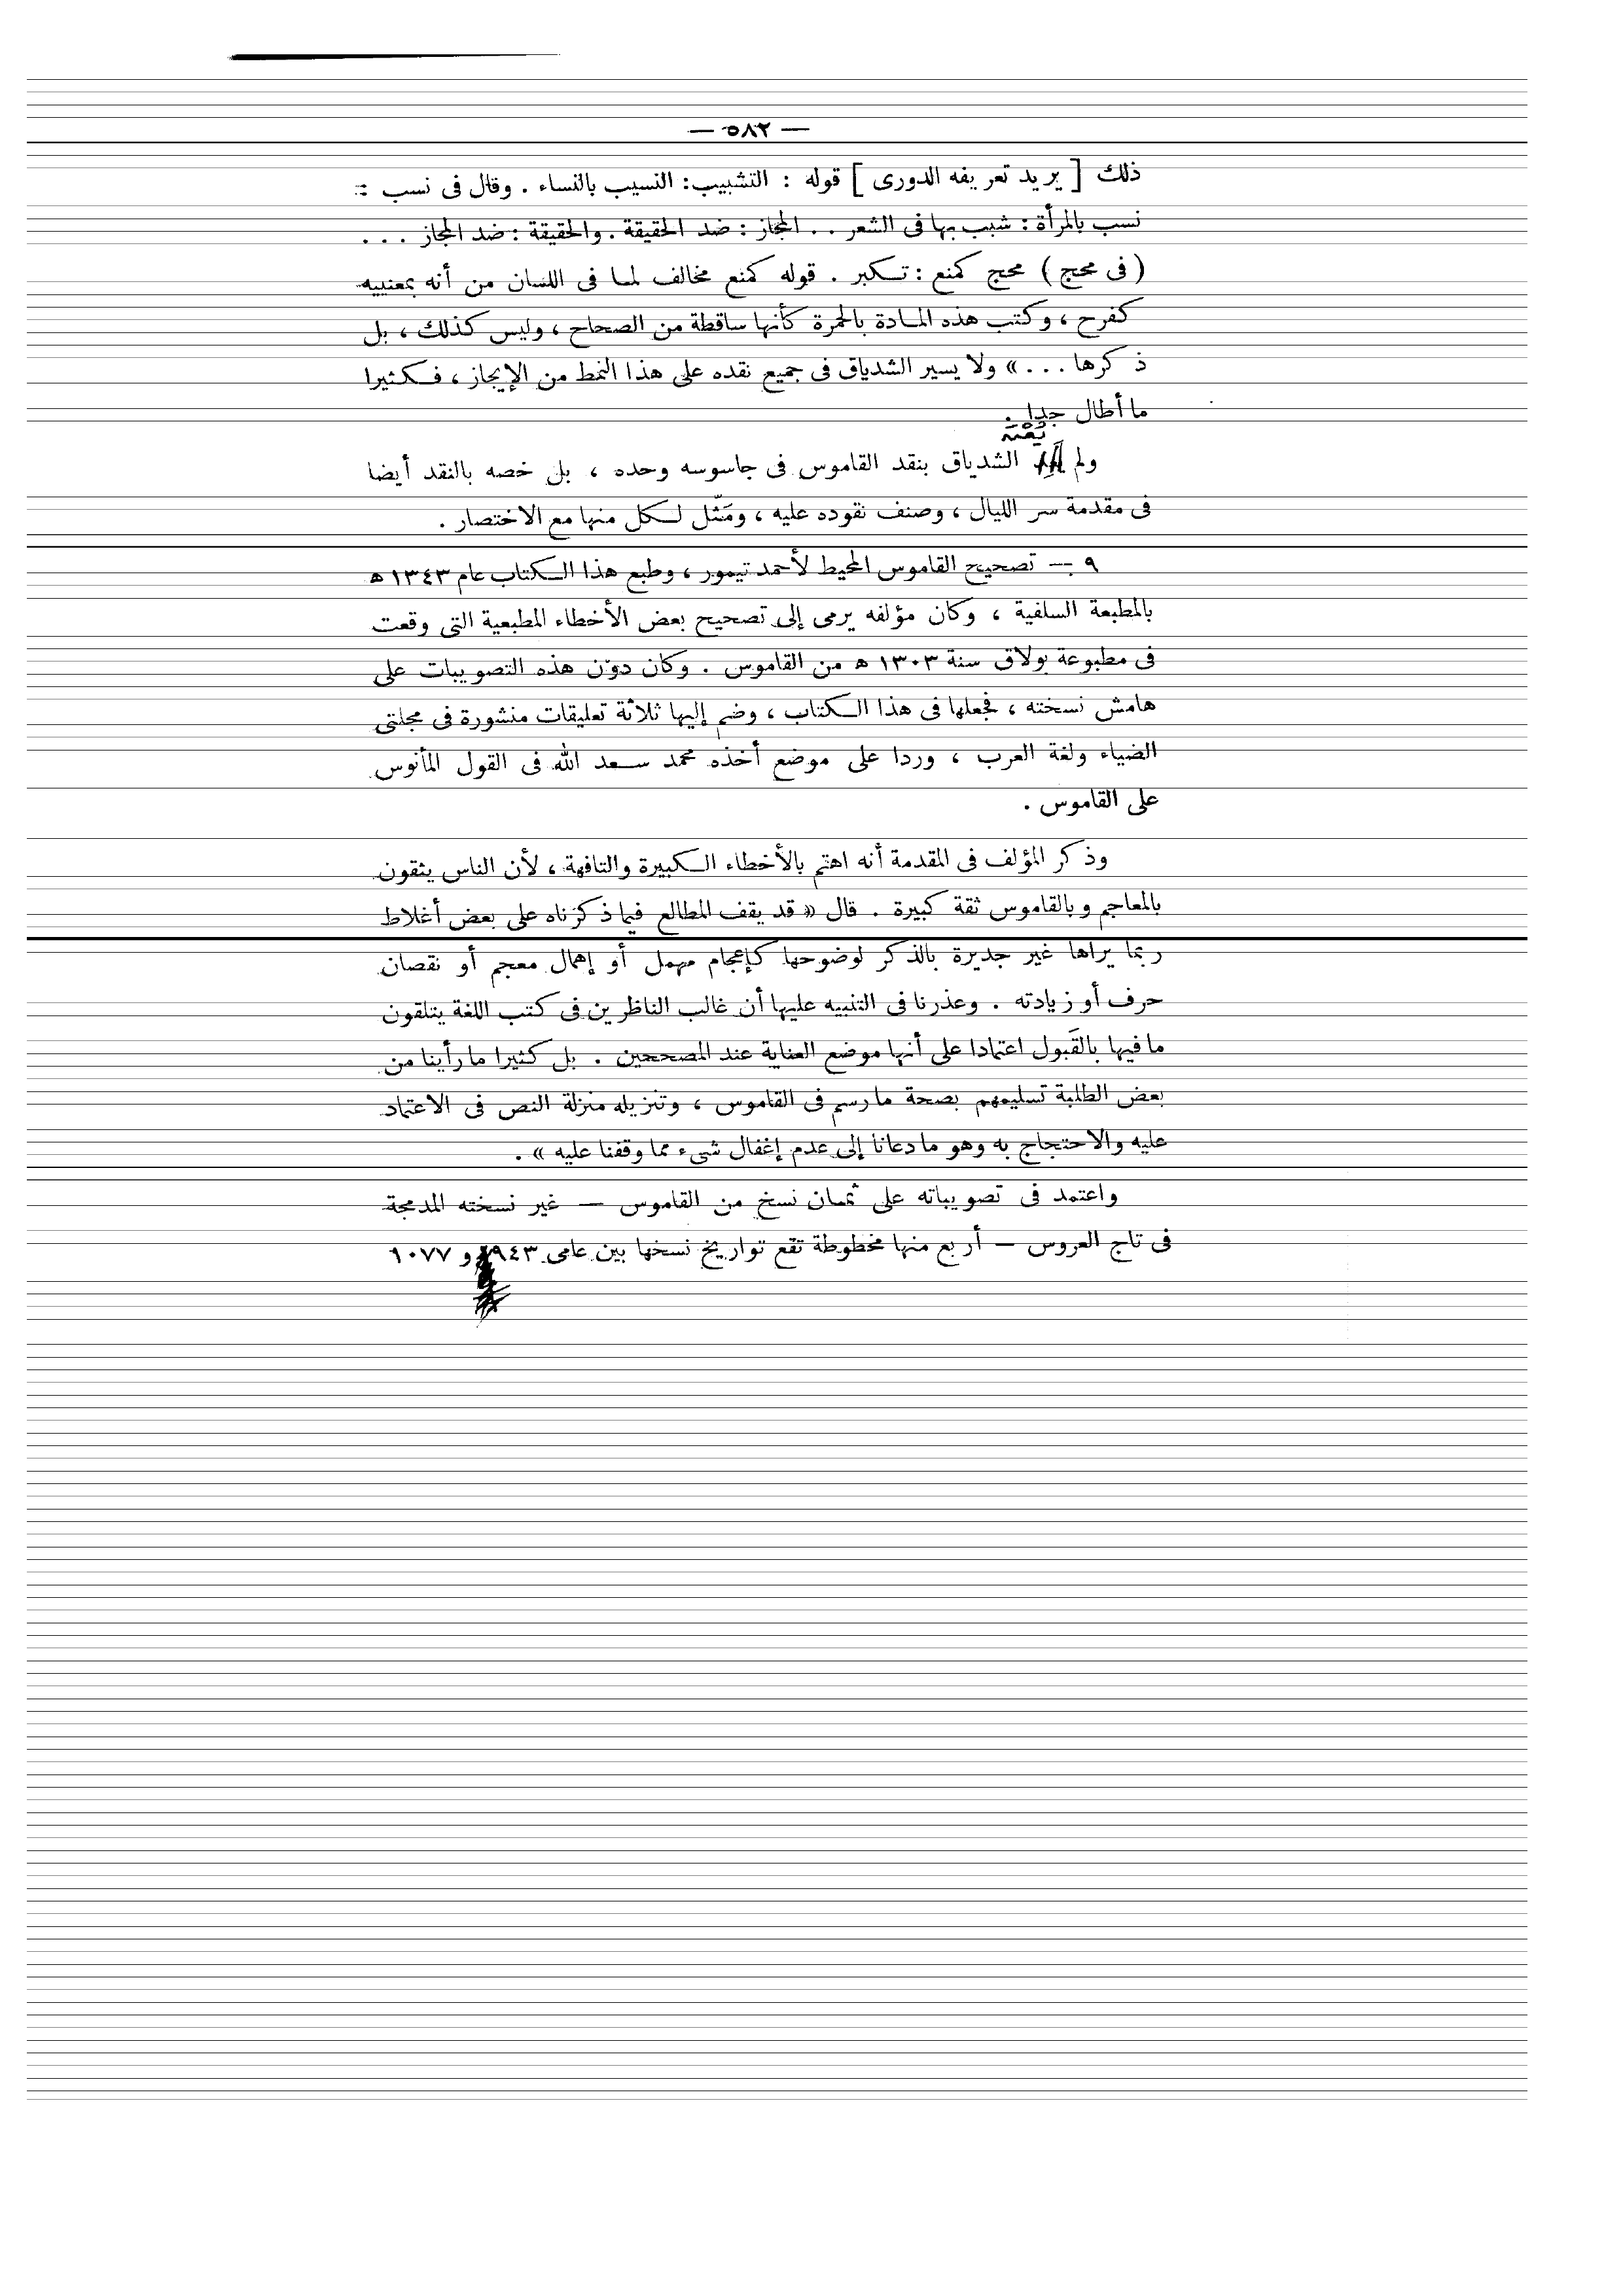 — ٥٨٢ —
ذلك [ يريد تعريفه الدورى ] قوله : التشبيب: النسيب بالنساء . وقال فى نسب :
نسب بالمرأة : شبب بها فى الشعر . . المجاز : ضد الحقيقة . والحقيقة : ضد المجاز . . .
( فى محج ) محج كمنع : تكبر . قوله كمنع مخالف لما فى اللسان من أنه بمعنييه
كفرح ، وكتب هذه المادة بالحمرة كأنها ساقطة من الصحاح ، وليس كذلك ، بل
ذكرها . . . » ولا يسير الشدياق فى جميع نقده على هذا النمط من الإيجاز ، فكثيرا
ما أطال جدا .
ولم الشدياق بنقد القاموس فى جاسوسه وحده ، بل خصه بالنقد أيضا
فى مقدمة سر الليال ، وصنف نقوده عليه ، ومَثّل لكل منها مع الاختصار .
٩ — تصحيح القاموس المحيط لأحمد تيمور ، وطبع هذا الكتاب عام ١٣٤٣ ه
بالمطبعة السلفية ، وكان مؤلفه يرمى إلى تصحيح بعض الأخطاء المطبعية التى وقعت
فى مطبوعة بولاق سنة ١٣٠٣ ه من القاموس . وكان دوّن هذه التصويبات على
هامش نسخته ، فجعلها فى هذا الكتاب ، وضم إليها ثلاثة تعليقات منشورة فى مجلتى
الضياء ولغة العرب ، وردا على موضع أخذه محمد سعد الله فى القول المأنوس
على القاموس .
وذكر المؤلف فى المقدمة أنه اهتم بالأخطاء الكبيرة والتافهة ، لأن الناس يثقون
بالمعاجم وبالقاموس ثقة كبيرة . قال « قد يقف المطالع فيما ذكرناه على بعض أغلاط
ربما يراها غير جديرة بالذكر لوضوحها كإعجام مهمل أو إهمال معجم أو نقصان
حرف أو زيادته . وعذرنا فى التنبيه عليها أن غالب الناظرين فى كتب اللغة يتلقون
ما فيها بالقَبول اعتمادا على أنها موضع العناية عند المصححين . بل كثيرا ما رأينا من
بعض الطلبة تسليمهم بصحة ما رسم فى القاموس ، وتنزيله منزلة النص فى الاعتماد
عليه والاحتجاج به وهو ما دعانا إلى عدم إغفال شىء مما وقفنا عليه » .
واعتمد فى تصويباته على ثمان نسخ من القاموس — غير نسخته المدمجة
فى تاج العروس — أربع منها مخطوطة تقع تواريخ نسخها بين عامى ٩٤٣ و ١٠٧٧